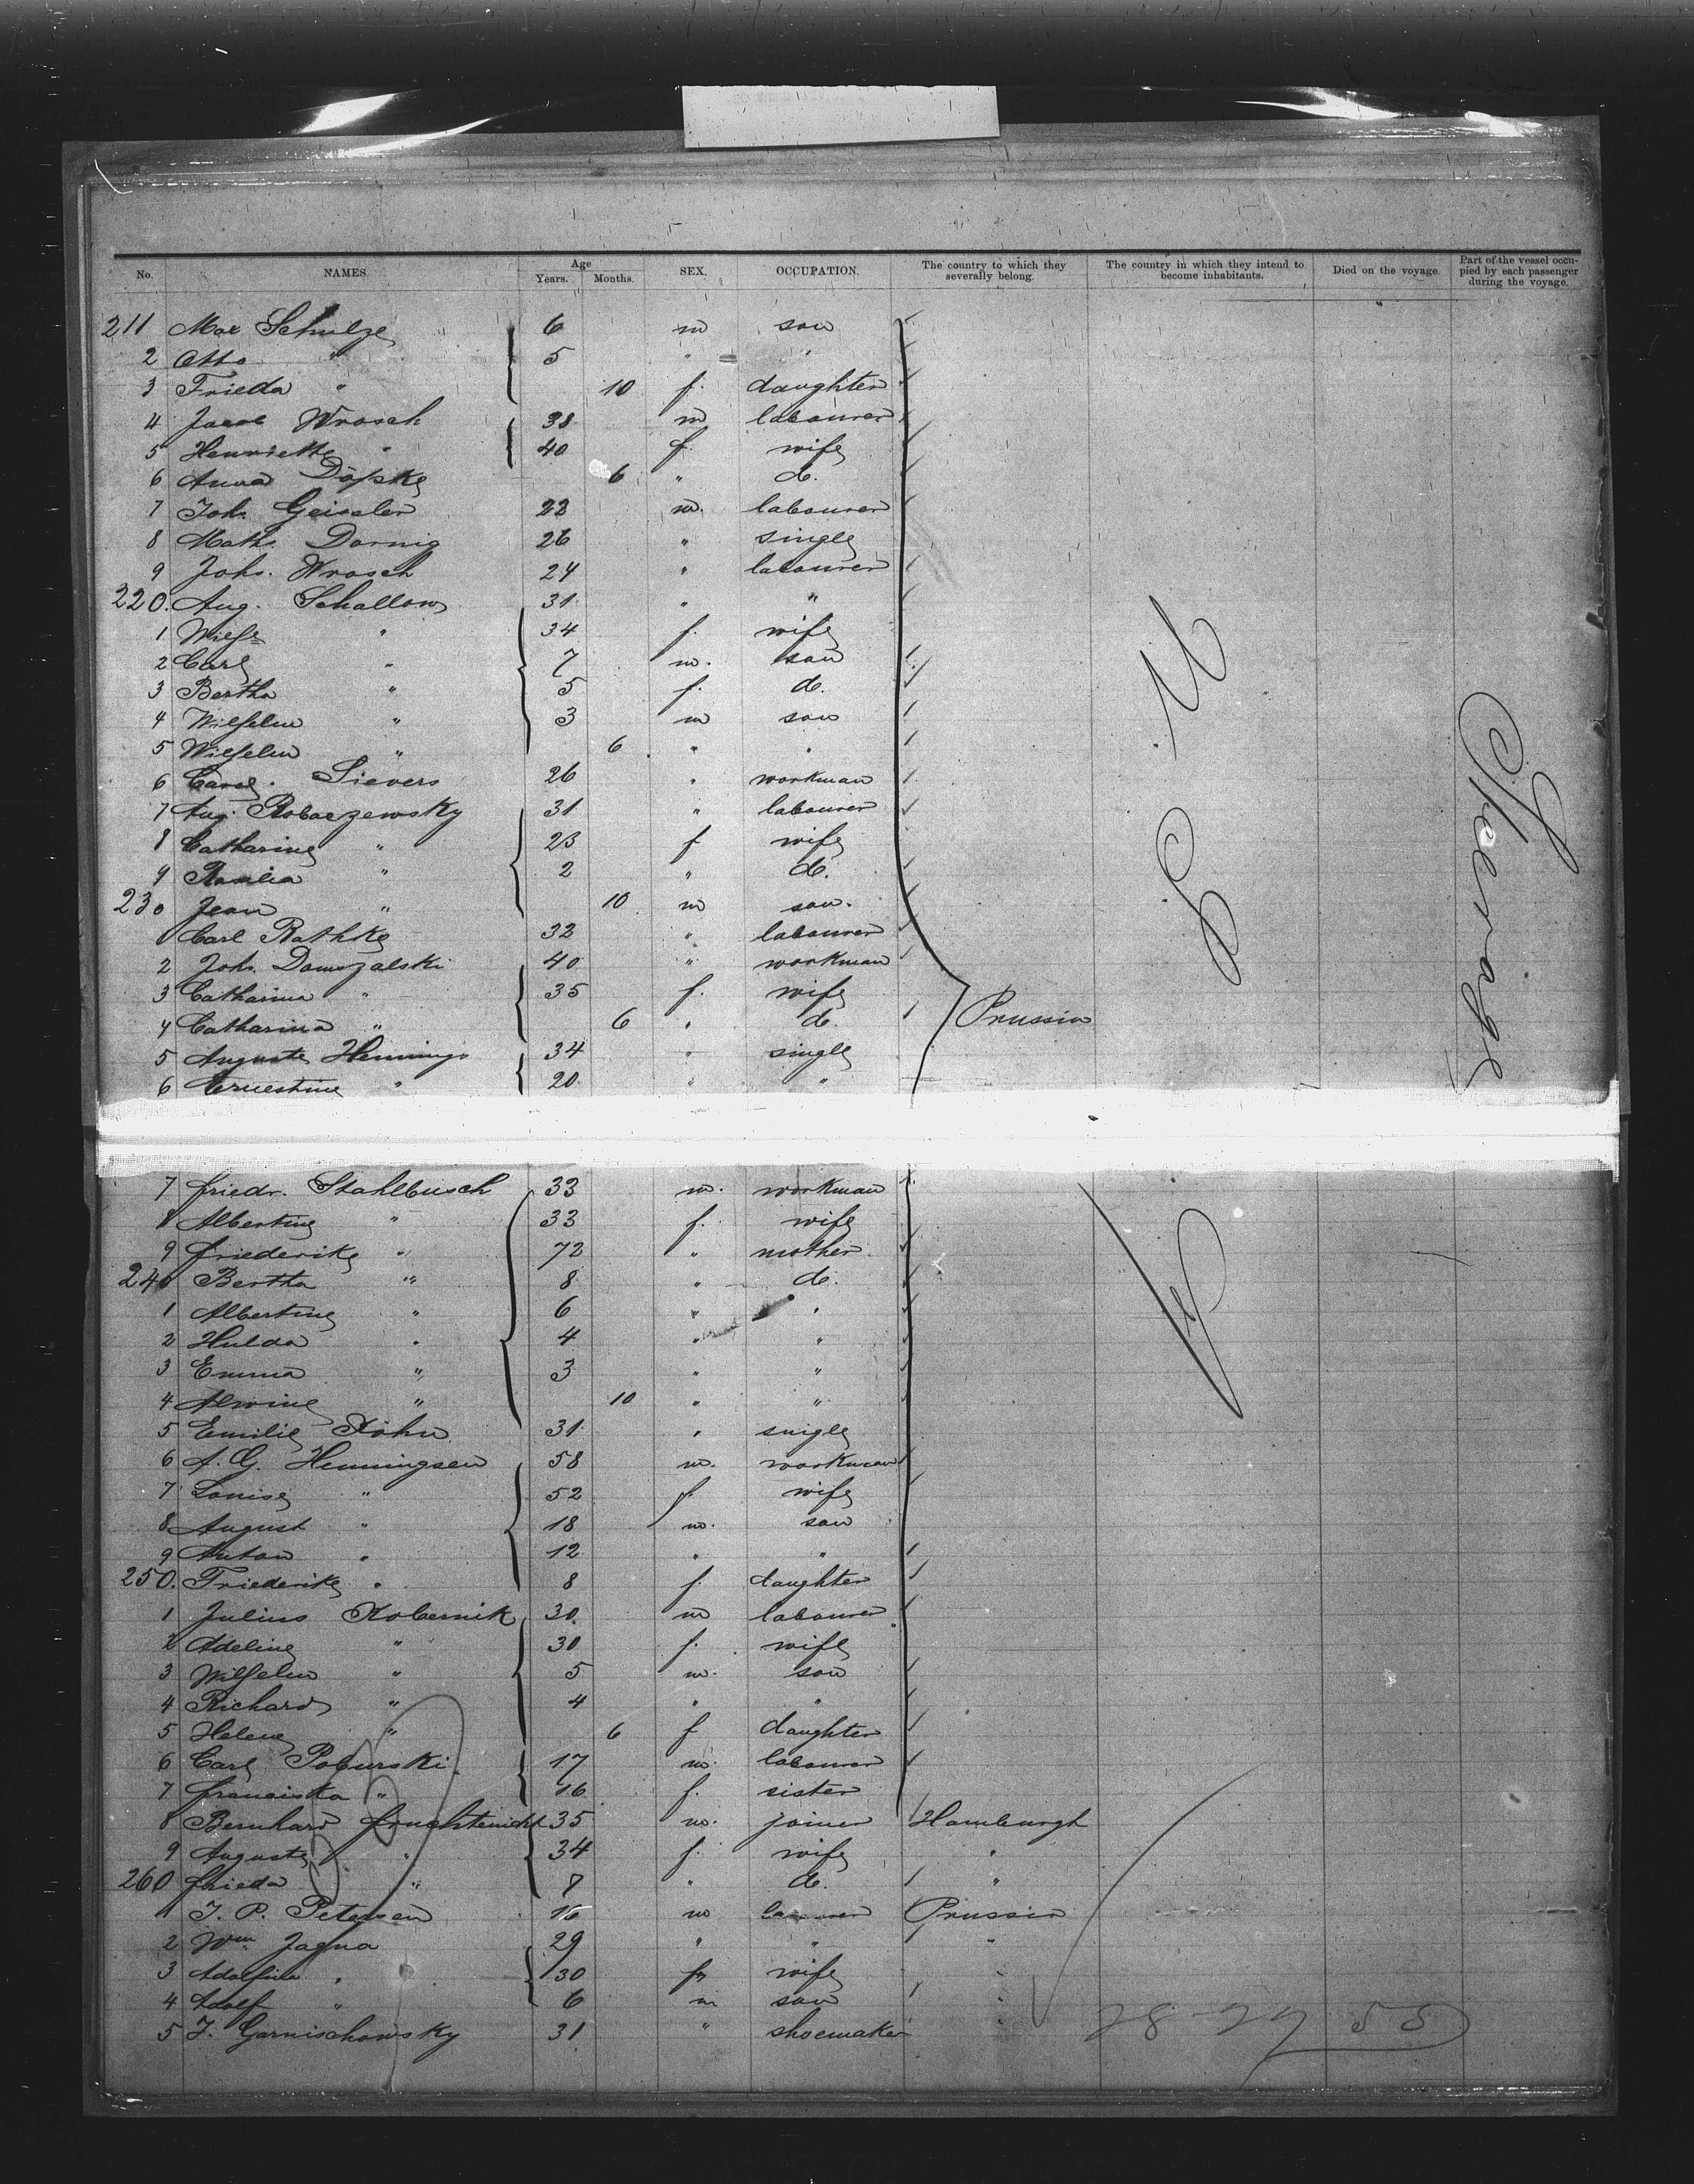 No. NAMES. Age Years. Months. SEX. OCCUPATION. The country to which they severally belong. The country in which they intend to become inhabitants. Died on the voyage. Part of the vessel occupied by each passenger during the voyage.
211 Max Schulze 6 m son
2 Otto " 5 " "
3 Frieda " 10 f. daughter
4 Jacob Wrosch 38 m labourer
5 Henriette " 40 f. wife
6 Anna Döpske 6 " d.
7 Joh. Geissler 22 m. labourer
8 Math. Dornig 26 " single
9 Johs. Wrosch 24 " labourer
220. Aug. Schallow 31 " "
1 Wilhe " 34 f. wife
2 Carl " 7 m. son
3 Bertha " 5 f. d.
4 Wilhelm " 3 m son
5 Wilhelm " 6 " "
6 Carl. Sievers 26 " workman
7 Aug. Robaczewsky 31 " labourer
8 Catharine " 23 f wife
9 Rosalia " 2 " d.
230 Jean " 10 m son.
1 Carl Rathke 32 " labourer
2 Joh. Domszalski 40 " workman
3 Catharina " 35 f. wife
4 Catharina " 6 " d. Prussia
5 Auguste Hennings 34 " single
6 Ernestine " 20 " "
U. S. A
Steerage
7 Friedr. Stahlbusch 33 m. workman
8 Albertine " 33 f. wife
9 Friederike " 72 " mother
240 Bertha " 8 " d.
1 Albertine " 6 " "
2 Hulda " 4 " "
3 Emma " 3 " "
4 Alwine " 10 " "
5 Emilie Köhn 31 " single
6 A. G. Henningsen 58 m. workman
7 Louise " 52 f. wife
8 August " 18 m. son
9 Anton " 12 " "
250. Friederike " 8 f. daughter
1 Julius Kobernik 30 m labourer
2 Adeline " 30 f. wife
3 Wilhelm " 5 m. son
4 Richard " 4 " "
5 Helene " 6 f daughter
6 Carl Poburski 17 m. labourer
7 Franciska " 16 f. sister
8 Bernhard Fruchtenicht 35 m. joiner Hamburgh
9 Auguste " 34 f. wife "
260 Frieda " 8 " d. "
1 J. P. Petersen 16 m labourer Prussia
2 Wm. Jagua 29 " " "
3 Adolfine " 30 f wife "
4 Adolf " 6 m son "
5 J. Garnischowsky 31 " shoemaker "